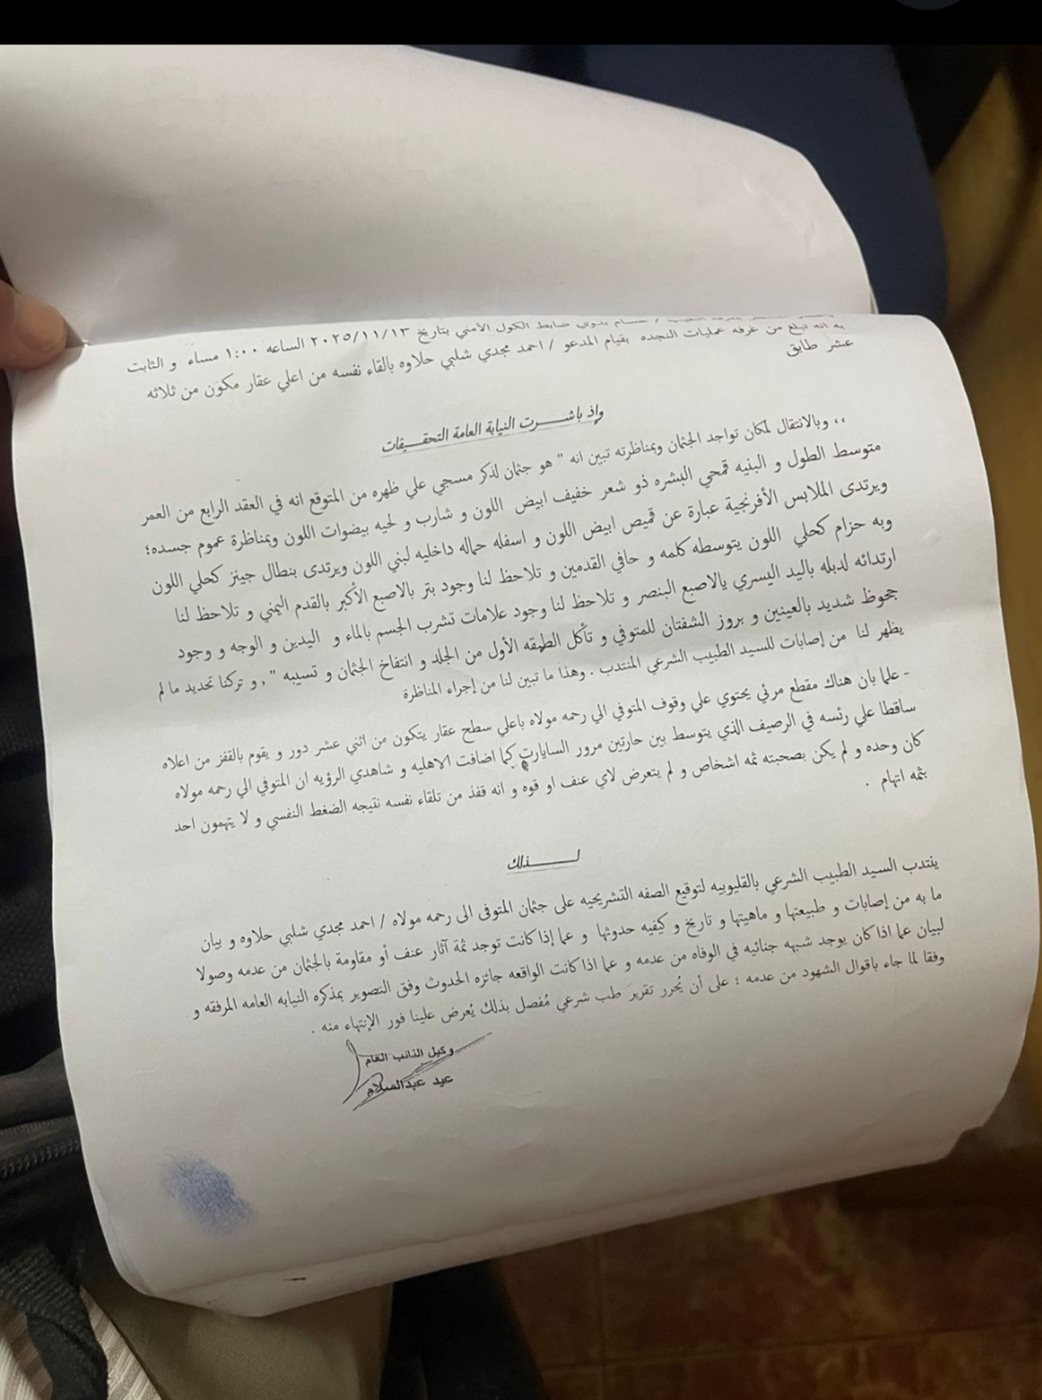 ضابط الكول الأمني بتاريخ ٢٠٢٥/١١/١٣ الساعه ١:٠٠ مساء و الثابت
به انه تبلغ من غرفه عمليات النجده بقيام المدعو / احمد مجدي شلبي حلاوه بالقاء نفسه من اعلي عقار مكون من ثلاثه
عشر طابق
وإذ باشرت النيابة العامة التحقيقات
،، وبالانتقال لمكان تواجد الجثمان وبمناظرته تبين انه " هو جثمان لذكر مسجي علي ظهره من المتوقع انه في العقد الرابع من العمر
متوسط الطول و البنيه قمحي البشره ذو شعر خفيف ابيض اللون و شارب و لحيه بيضوات اللون وبمناظرة عموم جسده؛
ويرتدى الملابس الأفرنجية عبارة عن قميص ابيض اللون و اسفله حماله داخليه لبني اللون ويرتدى بنطال جينز كحلي اللون
وبه حزام كحلي اللون يتوسطه كلمه و حافي القدمين و تلاحظ لنا وجود بتر بالاصبع الأكبر بالقدم اليمني و تلاحظ لنا
ارتدائه لدبله باليد اليسري يالاصبع البنصر و تلاحظ لنا وجود علامات تشرب الجسم بالماء و اليدين و الوجه و وجود
جحوظ شديد بالعينين و بروز الشفتان للمتوفي و تأكل الطبقه الأول من الجلد و انتفاخ الجثمان و تسيبه " , و تركنا تحديد ما لم
يظهر لنا من إصابات للسيد الطبيب الشرعي المنتدب . وهذا ما تبين لنا من إجراء المناظرة
- علما بان هناك مقطع مرئي يحتوي علي وقوف المتوفي الي رحمه مولاه باعلي سطح عقار يتكون من اثني عشر دور و يقوم بالقفز من اعلاه
ساقطا علي رئسه في الرصيف الذي يتوسط بين حارتين مرور السايارت كما اضافت الاهليه و شاهدي الرؤيه ان المتوفي الي رحمه مولاه
كان وحده و لم يكن بصحبته ثمه اشخاص و لم يتعرض لاي عنف او قوه و انه قفذ من تلقاء نفسه نتيجه الضغط النفسي و لا يتهمون احد
بثمه اتهام .
لـــذلك
ينتدب السيد الطبيب الشرعي بالقليوبيه لتوقيع الصفه التشريحيه على جثمان المتوفى الى رحمه مولاه / احمد مجدي شلبي حلاوه و بيان
ما به من إصابات و طبيعتها و ماهيتها و تاريخ و كيفيه حدوثها و عما إذا كانت توجد ثمة آثار عنف أو مقاومة بالجثمان من عدمه وصولا
لبيان عما اذا كان يوجد شبهه جنائيه في الوفاه من عدمه و عما اذا كانت الواقعه جائزه الحدوث وفق التصوير بمذكره النيابه العامه المرفقه و
وفقا لما جاء باقوال الشهود من عدمه ؛ على أن يُحرر تقريرَ طب شرعي مُفصل بذلك يُعرض علينا فور الإنتهاء منه .
وكيل النائب العام
عيد عبدالسلام